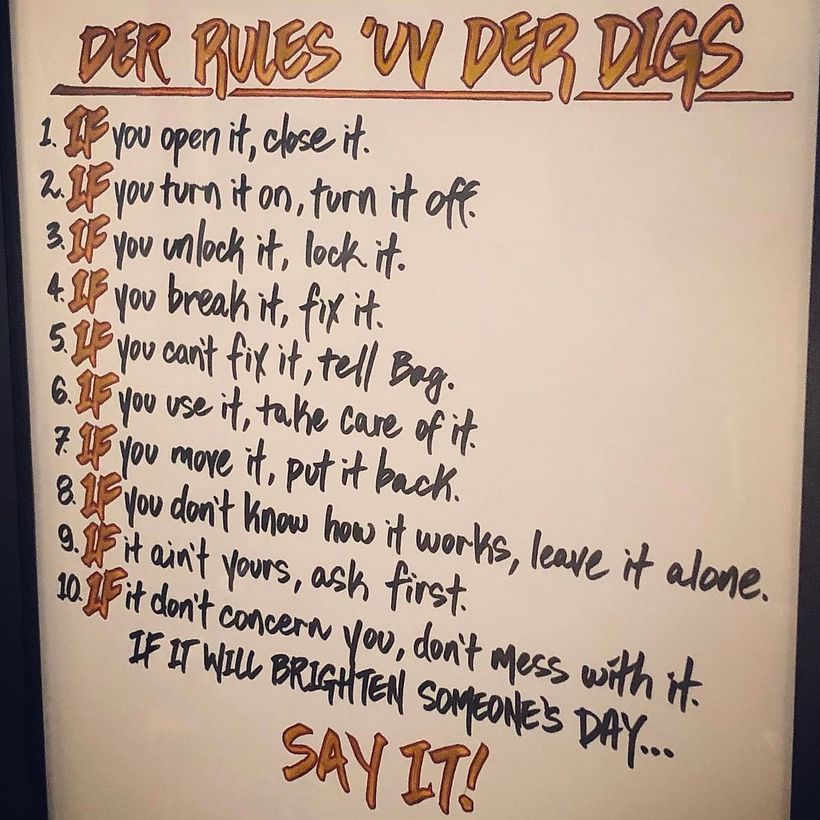 DER RULES 'UV DER DIGS
1. IF you open it, close it.
2. IF you turn it on, turn it off.
3. IF you unlock it, lock it.
4. IF you break it, fix it.
5. IF you can't fix it, tell Bag.
6. IF you use it, take care of it.
7. IF you move it, put it back.
8. IF you don't know how it works, leave it alone.
9. IF it ain't yours, ask first.
10. IF it don't concern you, don't mess with it.
IF IT WILL BRIGHTEN SOMEONE'S DAY...
SAY IT!